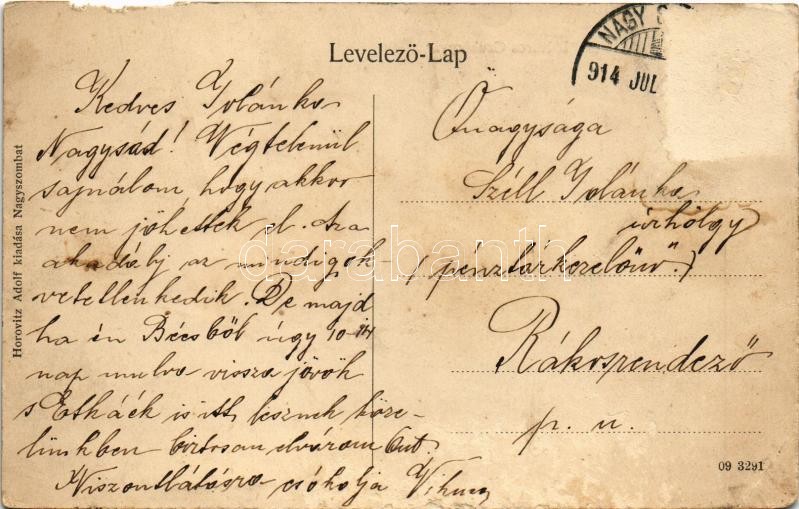 Levelező-Lap
NAGY
914 JUL
Kedves Jolánka
Nagysád! Végtelenül
sajnálom hogy akkor
nem jöhettek el. Az a
akadály az mindig ok
vetetlenkedik. De majd
ha én Bécsből úgy 10-14
nap mulva vissza jövök
s Etkáék is itt lesznek köze-
lünkben biztosan elvárom Önt
Viszontlátásra csókolja
Őnagysága
Széll Jolánka
úrhölgy
(pénztárkezelőnő.)
Rákosrendező
p. u.
Horovitz Adolf kiadása Nagyszombat
09 3291
darabanth